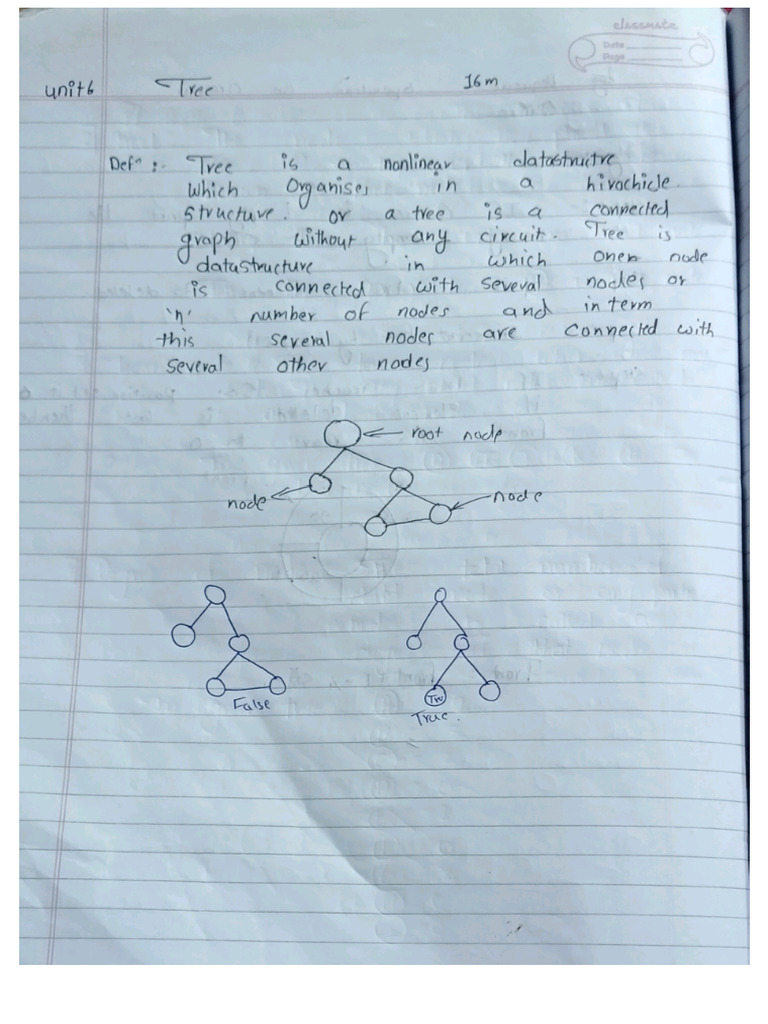 classmate
Date
Page
unit6 Tree 16m
Defn :- Tree is a nonlinear datastruitre
which Organises in a hirachicle.
structure. or a tree is a connected
graph without any circuit. Tree is
datastructure in which oner node
is connected with several nodes or
'n' number of nodes and in term
this several nodes are connected with
several other nodes
root node
node
node
False
Tru
True.